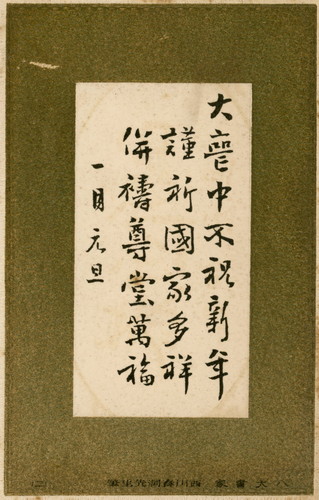 大喪中不祝新年
謹祈國家多祥
併禱尊堂萬福
一月元旦
八大書家 西川春洞先生筆
(二)